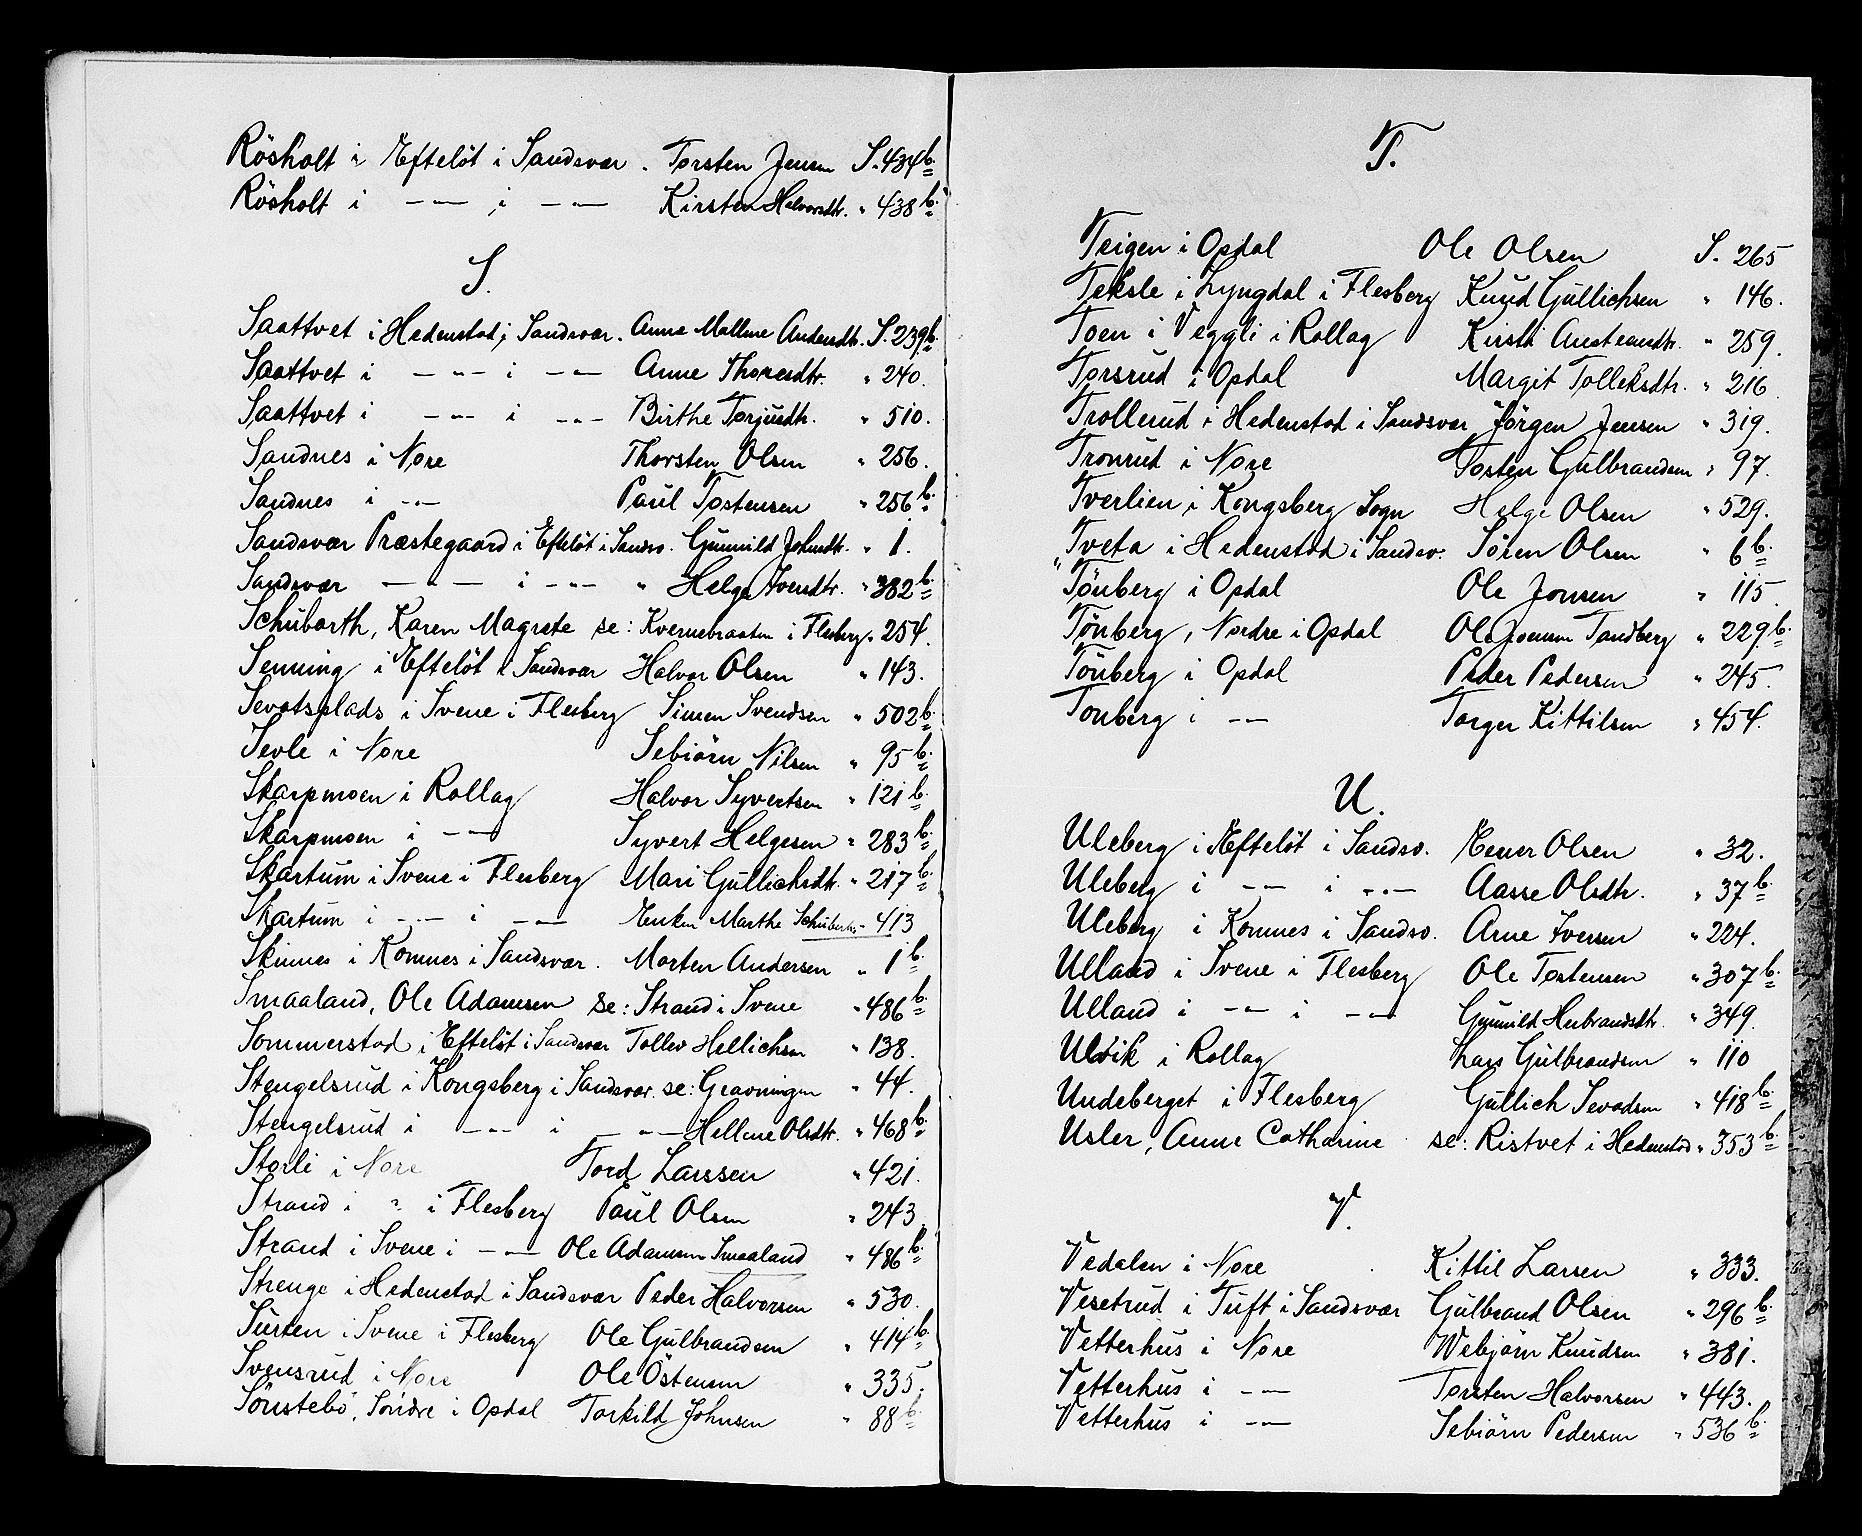 Rösholt i Efteløt i Sandsvær . Torsten Jensen S. 434 b.
Rösholt i — " — i — " — Kirsten Halvorsdtr. " 438 b.
S.
Saattvet i Hedenstad i Sandsvær . Anne Mallene Andersdtr. S. 239 b.
Saattvet i — " — i — " — Anne Thoresdtr. " 240.
Saattvet i — " — i — " — Birthe Torjusdtr. " 510.
Sandnes i Nore Thorsten Olsen " 256.
Sandnes i — " — Paul Tostensen " 256 b.
Sandsvær Præstegaard i Efteløt i Sandsv. Gunnild Johnsdtr. " 1.
Sandsvær — " — i — " — " Helga Iversdtr. " 382 b.
Schübarth, Karen Magrete se: Kvernebraaten i Flesberg " 254.
Senning i Efteløt i Sandsvær Halvor Olsen " 143.
Sevatsplads i Svene i Flesberg Simen Svendsen " 502 b.
Sevle i Nore Sebiörn Nilsen " 95 b.
Skarpmoen i Rollag Halvor Syvertsen " 121 b.
Skarpmoen i — " — Syvert Helgesen " 283 b.
Skartum i Svene i Flesberg Mari Gullichsdtr. " 217 b.
Skartum i — " — i — " — Enken Marthe Schuberths " 413
Skinnes i Komnes i Sandsvær . Morten Andersen " 1 b.
Smaaland, Ole Adamsen se: Strand i Svene " 486 b.
Sommerstad i Efteløt i Sandsvær Tollev Hellichsen " 138.
Stengelsrud i Kongsberg i Sandsvær. se: Gravningen " 44.
Stengelsrud i — " — i — " — Hellene Olsdtr. " 468 b.
Storli i Nore Tord Larssen " 421.
Strand i " i Flesberg Paul Olsen " 243.
Strand i Svene i — " — Ole Adamsen Smaaland " 486 b.
Strenge i Hedenstad i Sandsvær Peder Halvorsen " 530.
Sürten i Svene i Flesberg Ole Gülbrandsen " 414 b.
Svensrud i Nore Ole Östensen " 335.
Sönstebö, Söndre i Opdal Torkild Johnsen " 88 b.
T.
Teigen i Opdal Ole Olsen S. 265
Teksle i Lyngdal i Flesberg Knud Gullichsen " 146.
Toen i Veggli i Rollag Kirsti Anstensdtr. " 259.
Torsrud i Opdal Margit Tolleksdtr. " 216
Trollerud i Hedenstad i Sandsvær Jörgen Jensen " 319.
Tronrud i Nore Tosten Gülbrandsen " 97.
Tverlien i Kongsberg Sogn Helge Olsen " 529.
Tveta i Hedenstad i Sandsv. Sören Olsen " 6 b.
" Tönberg i Opdal Ole Jonsen " 115.
Tönberg, Nordre i Opdal Ole Jonsen Tandberg " 229 b.
Tönberg i Opdal Peder Pedersen " 245.
Tonberg i — " — Torger Kittilsen " 454.
U.
Uleberg i Efteløt i Sandsv. Ener Olsen " 32.
Uleberg i — " — i — " — Aasse Olsdtr. " 37 b.
Uleberg i Komnes i Sandsv. Arne Iversen " 224.
Ulland i Svene i Flesberg Ole Tostensen " 307 b.
Ulland i — " — i — " — Gunnild Herbrandsdtr. " 349.
Ulvik i Rollag Lars Gülbrandsen " 110
Undeberget i Flesberg Güllich Sevadsen " 418 b.
Usler, Anne Catharine se: Ristvet i Hedenstad " 353 b.
V.
Vedalen i Nore Kittil Larsen " 333.
Vesetrud i Tuft i Sandsvær Gülbrand Olsen " 296 b.
Vetterhus i Nore Webjörn Knudsen " 381.
Vetterhus i — " — Torsten Halvorsen " 443.
Vetterhus i — " — Sebiörn Pedersen " 536 b.